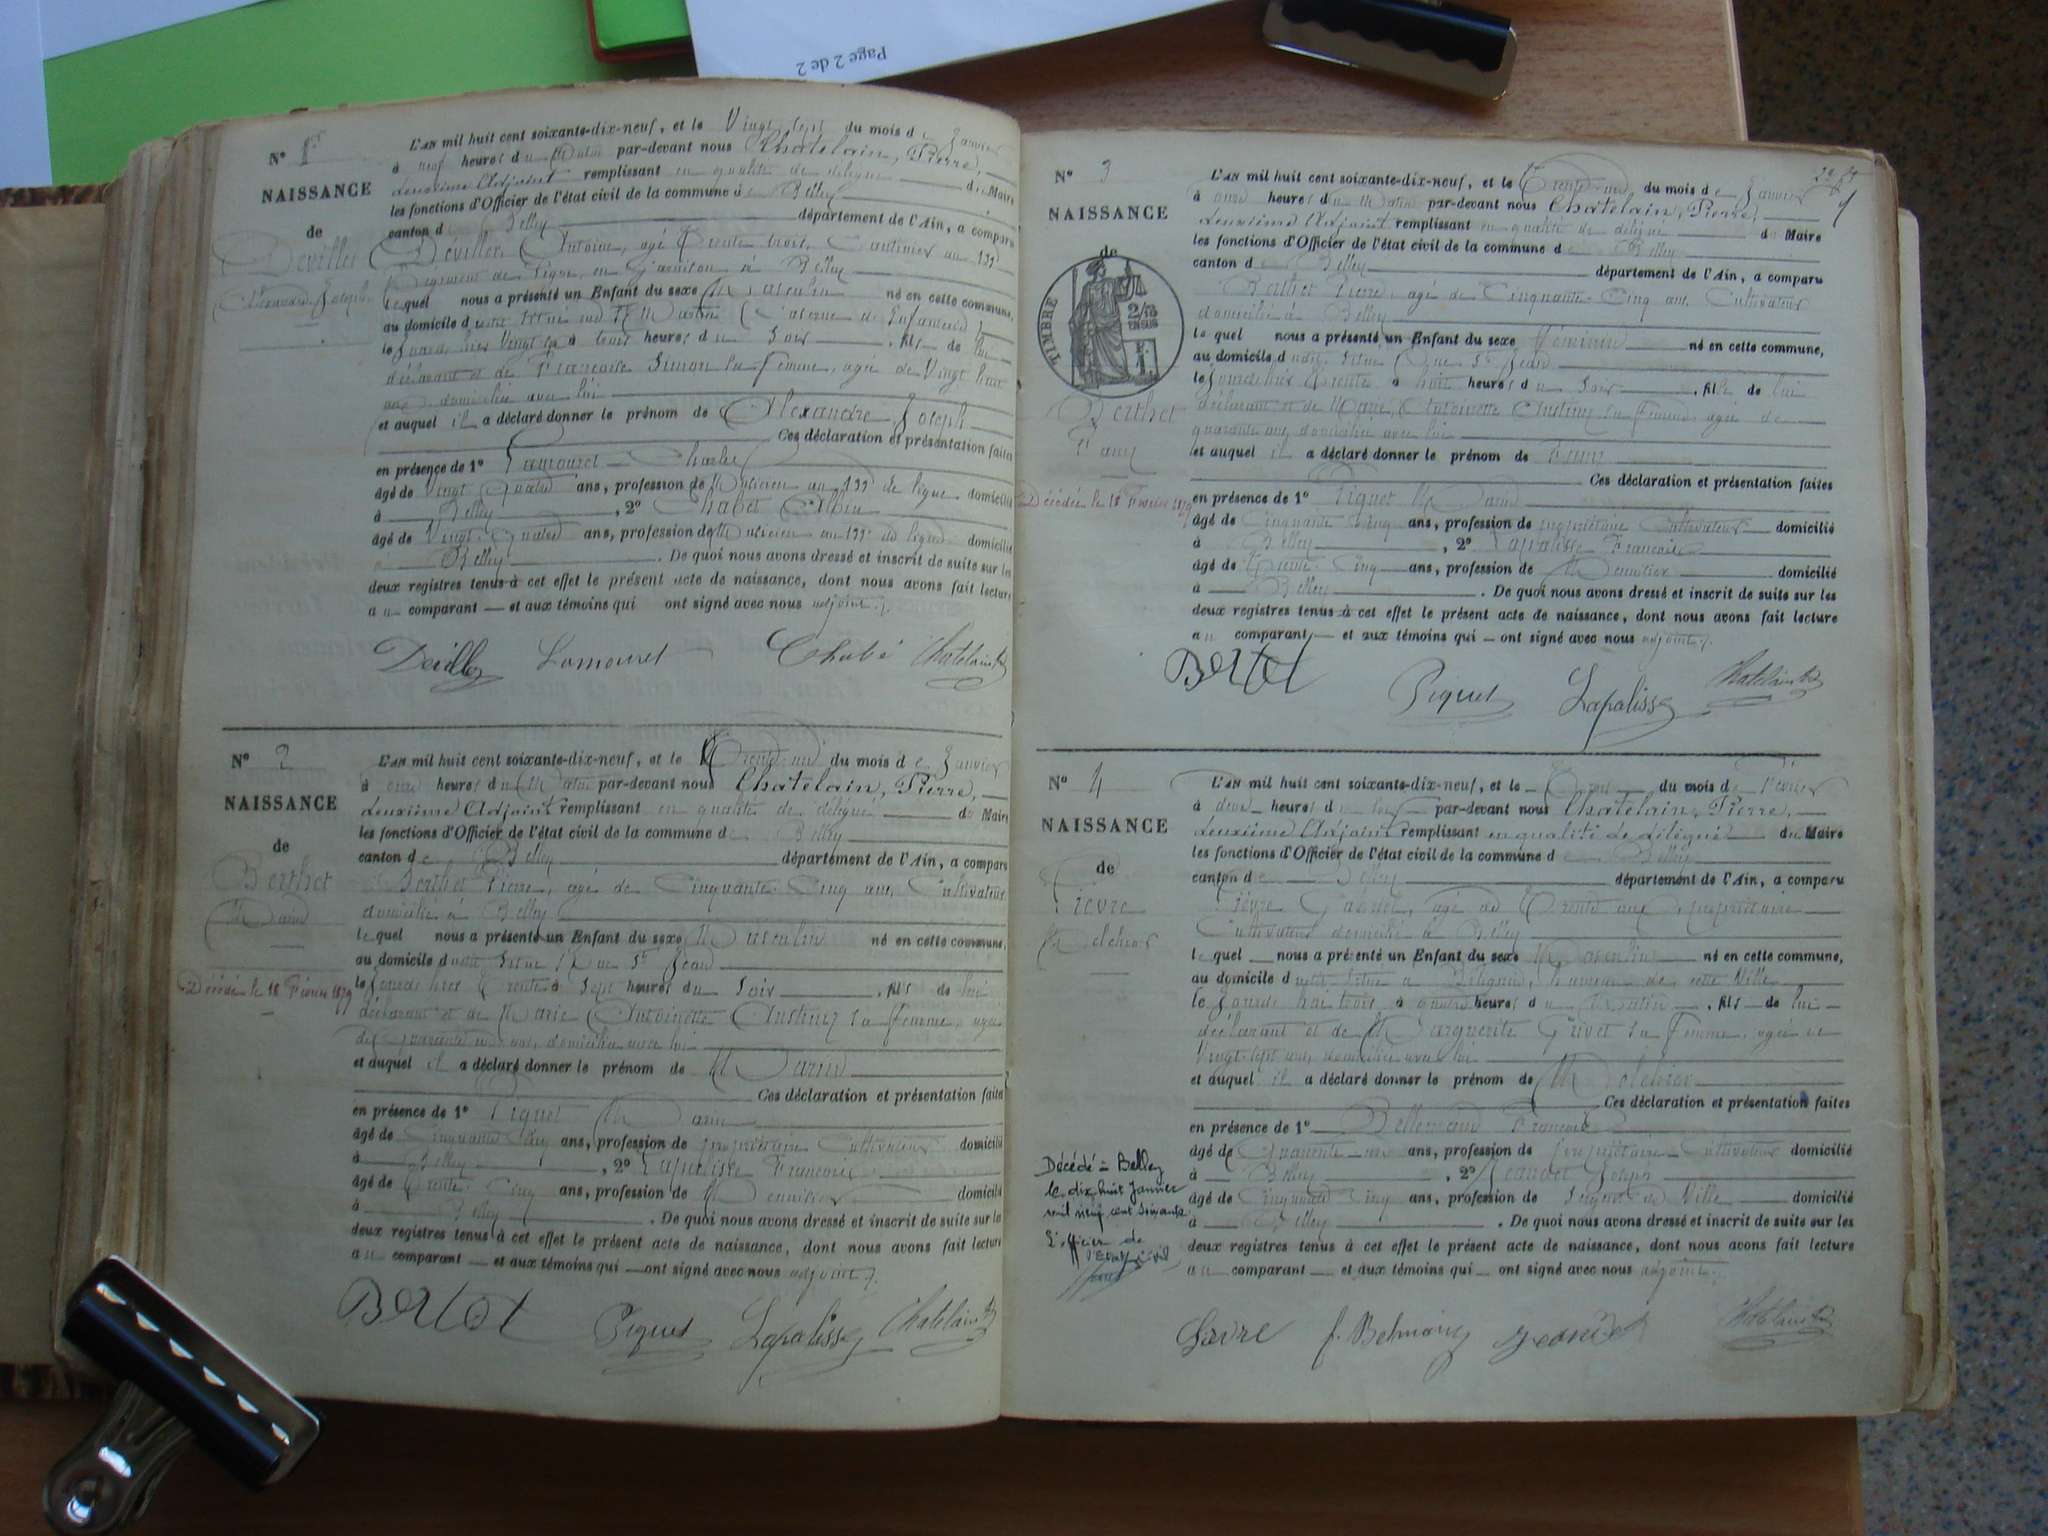 Page 2 de 2
N° 1er
NAISSANCE
de
Deviller
Alexandre Joseph
L'AN mil huit cent soixante-dix-neuf, et le Vingt-sept du mois de Janvier
à neuf heures du Matin par-devant nous Chatelain, Pierre,
deuxième Adjoint remplissant en qualité de délégué du Maire
les fonctions d'Officier de l'état civil de la commune de Belley
canton de Belley département de l'Ain, a comparu
Déviller Antoine, agé Trente trois, Cantinier au 133e
Régiment de ligne, en Garnison à Belley
lequel nous a présenté un Enfant du sexe Masculin né en cette commune,
au domicile d (Caserne de l'Infanterie)
le heures du Soir, fils de lui
déclarant et de Françoise Simon sa femme, agée de Vingt huit
ans domiciliée avec lui
et auquel il a déclaré donner le prénom de Alexandre Joseph
Ces déclaration et présentation faites
en présence de 1° Lamouret Charles
âgé de Vingt Quatre ans, profession de Musicien au 133e de ligne domicilié
à Belley, 2° Chabet Albin
âgé de Vingt-Quatre ans, profession de Musicien au 133e de ligne domicilié
à Belley. De quoi nous avons dressé et inscrit de suite sur les
deux registres tenus à cet effet le présent acte de naissance, dont nous avons fait lecture
au comparant et aux témoins qui ont signé avec nous adjoint.
Deviller Lamouret Chabé Chatelain
N° 2
NAISSANCE
de
Berthet
Marin
Décédé le 18 Février 1879
L'AN mil huit cent soixante-dix-neuf, et le Trente-un du mois de Janvier
à onze heures du Matin par-devant nous Chatelain, Pierre,
deuxième Adjoint remplissant en qualité de délégué du Maire
les fonctions d'Officier de l'état civil de la commune de Belley
canton de Belley département de l'Ain, a comparu
Berthet Pierre, agé de Cinquante-Cinq ans, Cultivateur
domicilié à Belley
lequel nous a présenté un Enfant du sexe Masculin né en cette commune,
au domicile dudit Situé Rue St Jean
le Jourd'hier Trente à Sept heures du Soir, fils de lui
déclarant et de Marie Antoinette sa femme, agée
de quarante ans, domiciliée avec lui
et auquel il a déclaré donner le prénom de Marin
Ces déclaration et présentation faites
en présence de 1° Piguet Marin
âgé de Cinquante Cinq ans, profession de propriétaire Cultivateur domicilié
à Belley, 2° Lapalisse François
âgé de Trente-Cinq ans, profession de Menuisier domicilié
à Belley. De quoi nous avons dressé et inscrit de suite sur les
deux registres tenus à cet effet le présent acte de naissance, dont nous avons fait lecture
au comparant et aux témoins qui ont signé avec nous adjoint.
Bertet Piguet Lapalisse Chatelain
N° 3
NAISSANCE
de
TIMBRE
2/10
EN SUS
Berthet
Fany
Décédée le 18 Février 1879
L'AN mil huit cent soixante-dix-neuf, et le Trente-un du mois de Janvier
à onze heures du Matin par-devant nous Chatelain, Pierre,
deuxième Adjoint remplissant en qualité de délégué du Maire
les fonctions d'Officier de l'état civil de la commune de Belley
canton de Belley département de l'Ain, a comparu
Berthet Pierre, agé de Cinquante-Cinq ans, Cultivateur
domicilié à Belley
lequel nous a présenté un Enfant du sexe Féminin né en cette commune,
au domicile dudit Situé Rue St Jean
le Jourd'hier Trente à huit heures du Soir, fille de lui
déclarant et de Marie Antoinette sa femme, agée de
quarante ans, domiciliée avec lui
et auquel il a déclaré donner le prénom de Fany
Ces déclaration et présentation faites
en présence de 1° Piguet Marin
âgé de Cinquante Cinq ans, profession de propriétaire Cultivateur domicilié
à Belley, 2° Lapalisse François
âgé de Trente-Cinq ans, profession de Menuisier domicilié
à Belley. De quoi nous avons dressé et inscrit de suite sur les
deux registres tenus à cet effet le présent acte de naissance, dont nous avons fait lecture
au comparant et aux témoins qui ont signé avec nous adjoint.
Bertet Piguet Lapalisse Chatelain
N° 4
NAISSANCE
de
Fièvre
Melchior
Décédé à Belley
le dix huit Janvier
mil neuf cent soixante
L'officier de
l'Etat civil
L'AN mil huit cent soixante-dix-neuf, et le Trois du mois de Février
à deux heures du Soir par-devant nous Chatelain, Pierre,
deuxième Adjoint remplissant en qualité de délégué du Maire
les fonctions d'Officier de l'état civil de la commune de Belley
canton de Belley département de l'Ain, a comparu
Fièvre agé de Trente ans, propriétaire
Cultivateur domicilié à Belley
lequel nous a présenté un Enfant du sexe Masculin né en cette commune,
au domicile dudit Situé à hameau de cette Ville
le trois à heures du Matin, fils de lui
déclarant et de Marguerite Grivet sa Femme, agée de
Vingt-Sept ans, domiciliée avec lui
et auquel il a déclaré donner le prénom de Melchior
Ces déclaration et présentation faites
en présence de 1° Bellemand François
âgé de Quarante ans, profession de propriétaire-Cultivateur domicilié
à Belley, 2° Jeandet Joseph
âgé de Cinquante Cinq ans, profession de Sergent de Ville domicilié
à Belley. De quoi nous avons dressé et inscrit de suite sur les
deux registres tenus à cet effet le présent acte de naissance, dont nous avons fait lecture
au comparant et aux témoins qui ont signé avec nous adjoint.
Chatelain